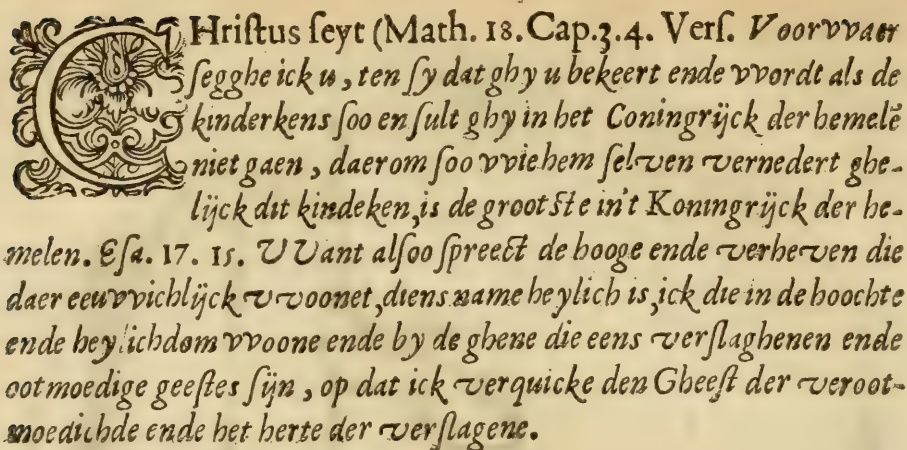 CHriſtus ſeyt (Math. 18. Cap.3.4. Verſ. Voorvvaer
ſegghe ick u, ten ſy dat ghy u bekeert ende vvordt als de
kinderkens ſoo en ſult ghy in het Coningrijck der hemelē
niet gaen, daerom ſoo vvie hem ſelven vernedert ghe-
lijck dit kindeken, is de grootſte in't Koningrijck der he-
melen. Eſa. 17. 15. VVant alſoo ſpreect de hooge ende verheven die
daer eeuvvichlijck vvoonet, diens name heylich is, ick die in de hoochte
ende heylichdom vvoone ende by de ghene die eens verſlaghenen ende
ootmoedige geeſtes ſijn, op dat ick verquicke den Gheeſt der veroot-
moedichde ende het herte der verſlagene.